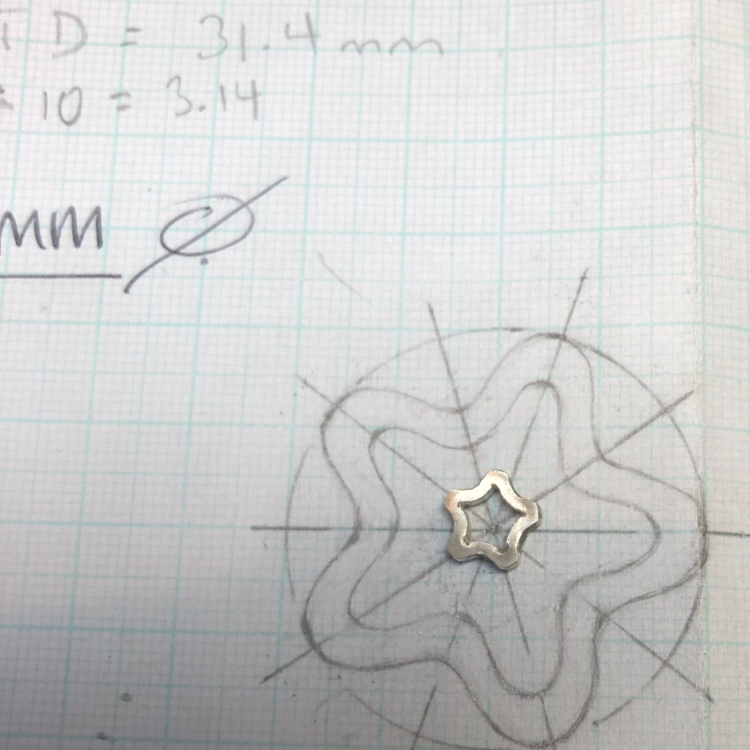 D = 31.4 mm
10 = 3.14
mm ⌀